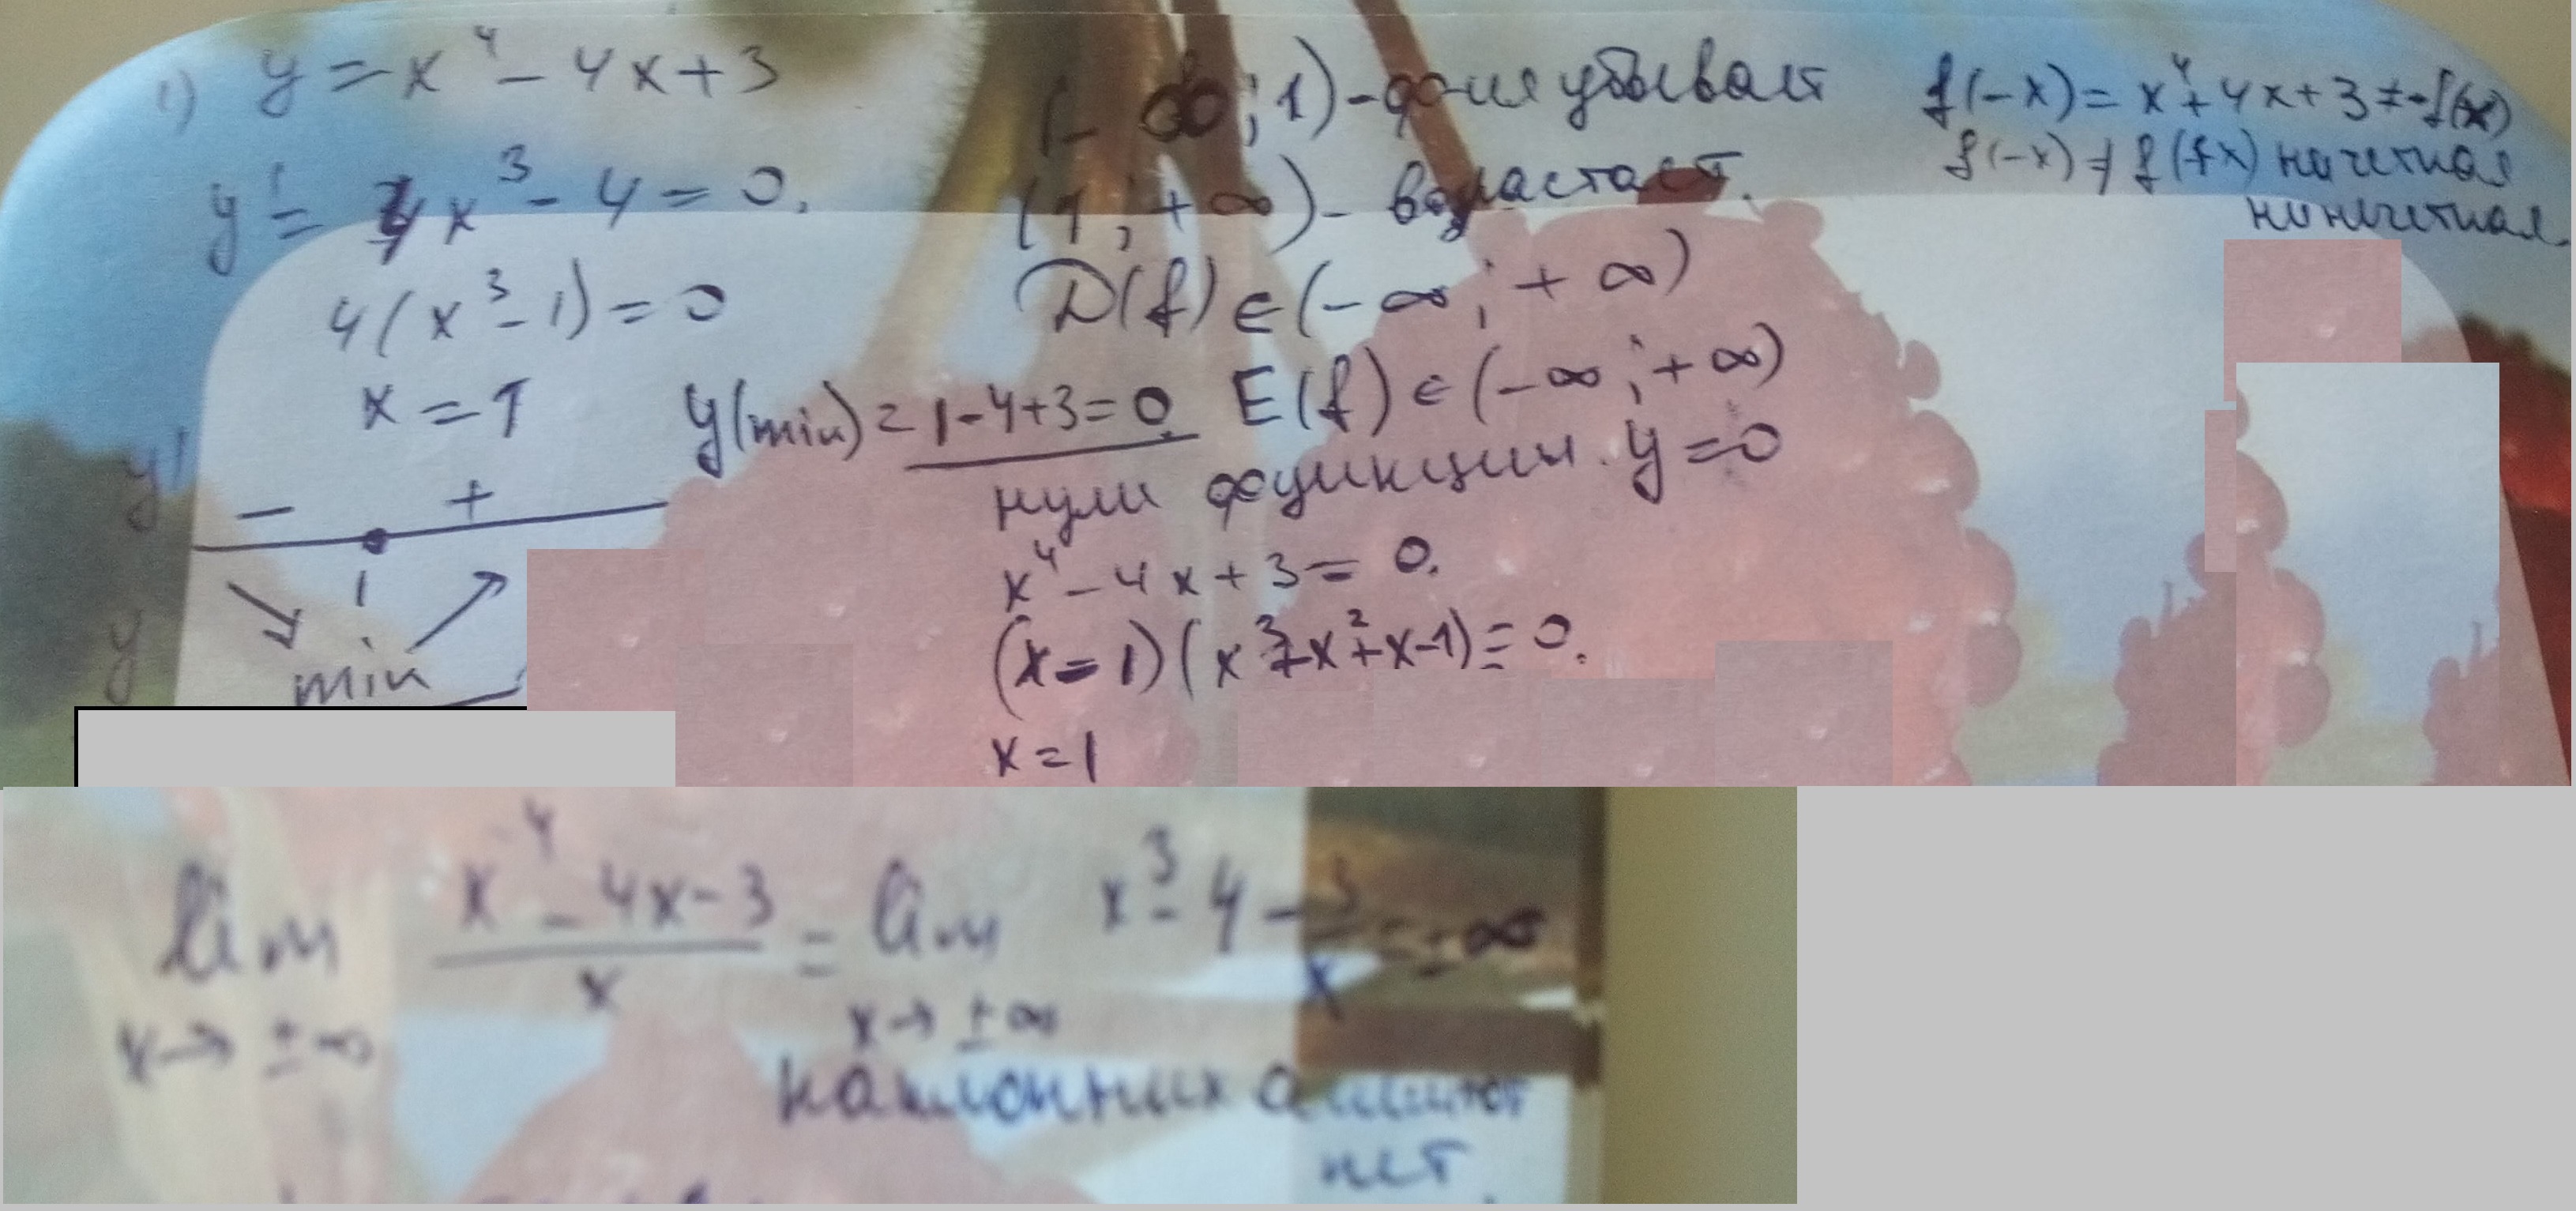 1) y = x⁴ - 4x + 3
y' = 4x³ - 4 = 0.
4(x³ - 1) = 0
x = 1
y(min) = 1-4+3=0.
y' - +
1
y min
(-∞; 1) - ф-ция убывает
(1; +∞) - возрастает.
D(f) ∈ (-∞; +∞)
E(f) ∈ (-∞; +∞)
нули функции. y = 0
x⁴ - 4x + 3 = 0.
(x - 1)(x³+x²+x-1) = 0.
x = 1
f(-x) = x⁴ + 4x + 3 ≠ -f(x)
f(-x) ≠ f(x) ни четная
ни нечетная.
lim x→±∞ (x⁴ - 4x - 3)/x = lim x→±∞ x³ - 4 - 3/x = ±∞
наклонных асимптот
нет.